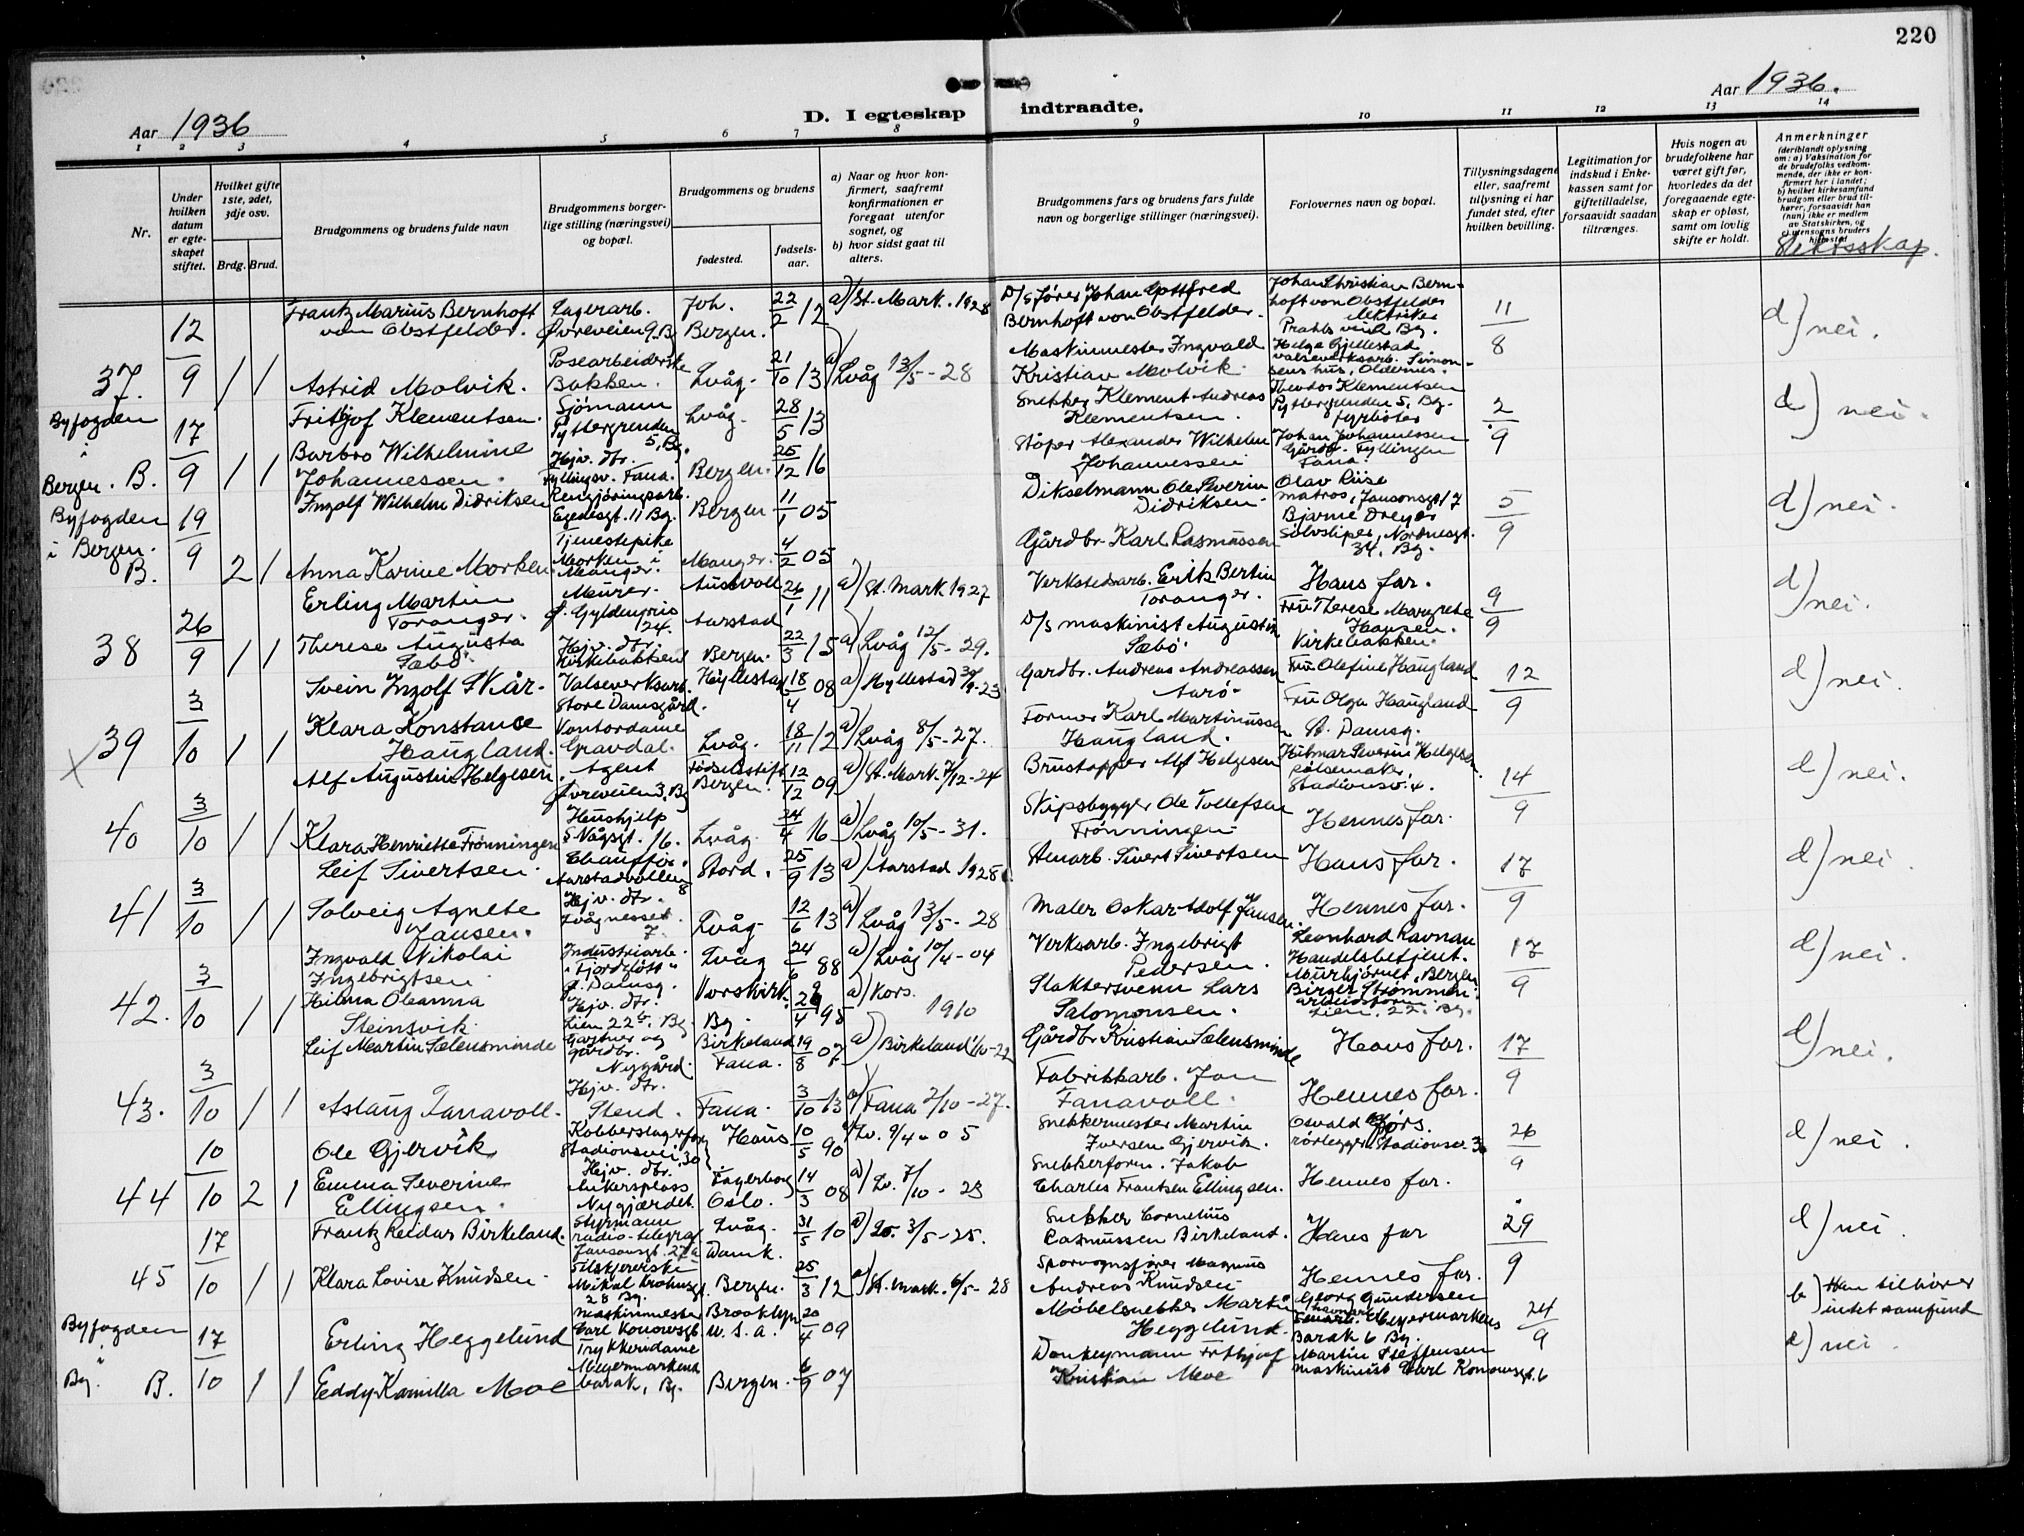 220
Aar 1936
D. I egteskap indtraadte.
Aar 1936.
1 2 3 4 5 6 7 8 9 10 11 12 13 14
Nr.
Under hvilken datum er egteskapet stiftet.
Hvilket gifte 1ste, 2det, 3dje osv.
Brdg. Brud.
Brudgommens og brudens fulde navn
Brudgommens borgerlige stilling (næringsvei) og bopæl.
Brudgommens og brudens
fødested.
fødselsaar.
a) Naar og hvor konfirmert, saafremt konfirmationen er foregaat utenfor sognet, og
b) hvor sidst gaat til alters.
Brudgommens fars og brudens fars fulde navn og borgerlige stillinger (næringsvei).
Forlovernes navn og bopæl.
Tillysningsdagene eller, saafremt tillysning ei har fundet sted, efter hvilken bevilling.
Legitimation for indskud i Enkekassen samt for giftetilladelse, forsaavidt saadan tiltrænges.
Hvis nogen av brudefolkene har været gift før, hvorledes da det foregaaende egteskap er opløst, samt om lovlig skifte er holdt.
Anmerkninger
(deriblandt oplysning om: a) Vaksination for de brudefolks vedkommende, der ikke er konfirmert her i landet; b) hvilket kirkesamfund brudgom eller brud tilhører, forsaavidt han (hun) ikke er medlem av Statskirken, og c) utensogns bruders hjemsted
Slektsskap.
37. 12/9 1 1
Frantz Marius Bernhoft von Obstfelder. Lagerarb. Øvreveien 9. B Joh. Bergen. 22/2 12 a) St. Mark. 1928
D/S fører Johan Gottfred Bernhoft von Obstfelder. Johan Christian Bernhoft von Obstfelder 11/8 d) nei.
Astrid Molvik. Posearbeiderske Bakken. Lvåg. 21/10 13 a) Lvåg 13/5 - 28
Maskinmester Ingvald Kristian Molvik. Helge Gjellestad valseverksarb. Simonsens hus, Oldernes.
Byfogden i Bergen. B. 17/9 1 1
Fritjof Klementsen. Sjømann Pyttergrenden 5, Bg. Lvåg. 28/5 13
Snekker Klement Andreas Klementsen. Theodor Klementsen Pyttergrenden 5, Bg. fyrbøter 2/9 d) nei.
Barbro Wilhelmine Johannessen. Hjv. dtr. Fyllingsv. Fana. Bergen. 25/12 16
Støper Alexander Wilhelm Johannessen Johan Johannessen Gårdbr. Fyllingen Fana.
Byfogden i Bergen. B. 19/9 2 1
Ingolf Wilhelm Didriksen Rengjøringsarb. Egedesgt. 11 Bg. Bergen 11/1 05
Dikselmann Ole Severin Didriksen. Olav Riise matros, Jansonsgt 17 5/9 d) nei.
Anna Karine Morken Tjenestepike Morken i Manger. Manger. 4/2 05
Gårdbr. Karl Rasmussen Bjarne Dreyer Sølvsliper, Nordnesgt. 34, Bg.
38 26/9 1 1
Erling Martin Toranger. Murer. J. Gyldenpris 24. Austevoll Aarstad 26/1 11 a) St. Mark 1927
Verkstedsarb. Erik Bertin Toranger. Hans far. 9/9 d) nei.
Therese Augusta Sæbø. Hjv. dtr. Kirkebakken Bergen. 22/3 15 a) Lvåg 12/5 - 29.
D/s maskinist Augustin Sæbø Fru Therese Margrethe Hansen. Kirkebakken.
X 39 3/10 1 1
Svein Ingolf Skår. Valseverksarb. Store Damsgård. Hyllestad 18/4 08 a) Hyllestad 30/9 - 23
Gardbr. Andreas Andreassen Aarø Fru Olefine Haugland 12/9 d) nei.
Klara Konstance Haugland. Kontordame Gravdal. Lvåg. 18/11 12 a) Lvåg 8/5 - 27.
Former Karl Martinussen Haugland. Fru Olga Haugland St. Damsg.
40 3/10 1 1
Alf Augustin Helgesen. Agent Øvreveien 3, Bg Fødselsstift. Bergen. 12/12 09 a) St. Mark. 7/12 - 24
Brustapper Alf Helgesen Hilmar Severin Helgesen. pølsemaker, Stadionsv. 4. 14/9 d) nei.
Klara Henriette Frønningen Hushjelp S. Vågsgt. 16. Lvåg. 24/4 16 a) Lvåg 10/5 - 31.
Skipsbygger Ole Tollefsen Frønningen Hennes far.
41 3/10 1 1
Leif Sivertsen. Chauffør. Aarstadvollen 8 Stord. 25/9 13 a) Aarstad 1928
Stenarb. Sivert Sivertsen Hans far. 17/9 d) nei.
Solveig Agnete Jansen. Hjv. dtr. Lvågnesset 7. Lvåg. 12/6 13 a) Lvåg 13/5 - 28
Maler Oskar Adolf Jansen. Hennes far.
42. 3/10 1 1
Ingvald Nikolai Ingebrigtsen Industriarb. "Fjordgløtt" J. Damsg. Lvåg 24/6 88 a) Lvåg 10/4 - 04
Verksarb. Ingebrigt Pedersen. Leonhard Ravnan Handelsbetjent. Murhjørnet, Bergen 17/9 d) nei.
Hilma Oleanna Steinsvik. Hjv. dtr. Lien 22b, Bg. Korskirk. Bg. 29/4 95 a) Kors. 1910
Slaktersvenn Lars Salomonsen. Birger Strømmen. arbeidsform. Lien. 22. Bg.
43. 3/10 1 1
Leif Martin Sælensminde Gartner og gårdbr. Nygård. Birkeland Fana. 19/8 07 a) Birkeland 1/10 - 22
Gårdbr. Kristian Sælensminde Hans far. 17/9 d) nei.
Aslaug Fanavoll. Hjv. dtr. Stend. Fana. 3/10 13 a) Fana 2/10 - 27.
Fabrikkarb. Jon Fanavoll. Hennes far.
44 10/10 2 1
Ole Gjervik Kobberslagerform. Stadionsvei 30 Haus 10/5 90 Lv. 9/4 - 05
Snekkermester Martin Iversen Gjervik. Osvald Gjørs. rørlegger Stadionsv. 3 26/9 d) nei.
Emma Severine Ellingsen. Hjv. dtr. Ankersplass Nygjærdet. Fagerborg Oslo. 14/3 08 a) Lv. 7/10 - 23
Snekkerform. Jakob Charles Frantsen Ellingsen. Hennes far.
45 17/10 1 1
Frantz Reidar Birkeland. Styrmann radio-telegraf. Jansonsgt. 27a Lvåg. Damk. 31/5 10 a) Lv. 3/5 - 25.
Snekker Cornelius Rasmussen Birkeland. Hans far 29/9 d) nei
Klara Lovise Knudsen Mikal Krohnsgt. 28 Bg. Bergen. 25/3 12 a) St. Mark. 6/5 - 28
Sporvognsfører Magnus Andreas Knudsen Hennes far.
Byfogden i Bg. B. 17/10 1 1
Erling Heggelund Maskinmester Carl Konowsgt. Brooklyn U.S.A. 20/4 09
Møbelsnekker Martin Heggelund. Georg Gundersen Meyermarkens Barak 6 Bg. 24/9 b) Han tilhører intet samfund
d) nei
Eddy Kamilla Moe Trykkeridame Meyermarkens barak, Bg. Bergen. 6/9 07
Donkeymann Frithjof Kristian Moe Martin Steffensen maskinist Carl Konowsgt. 6